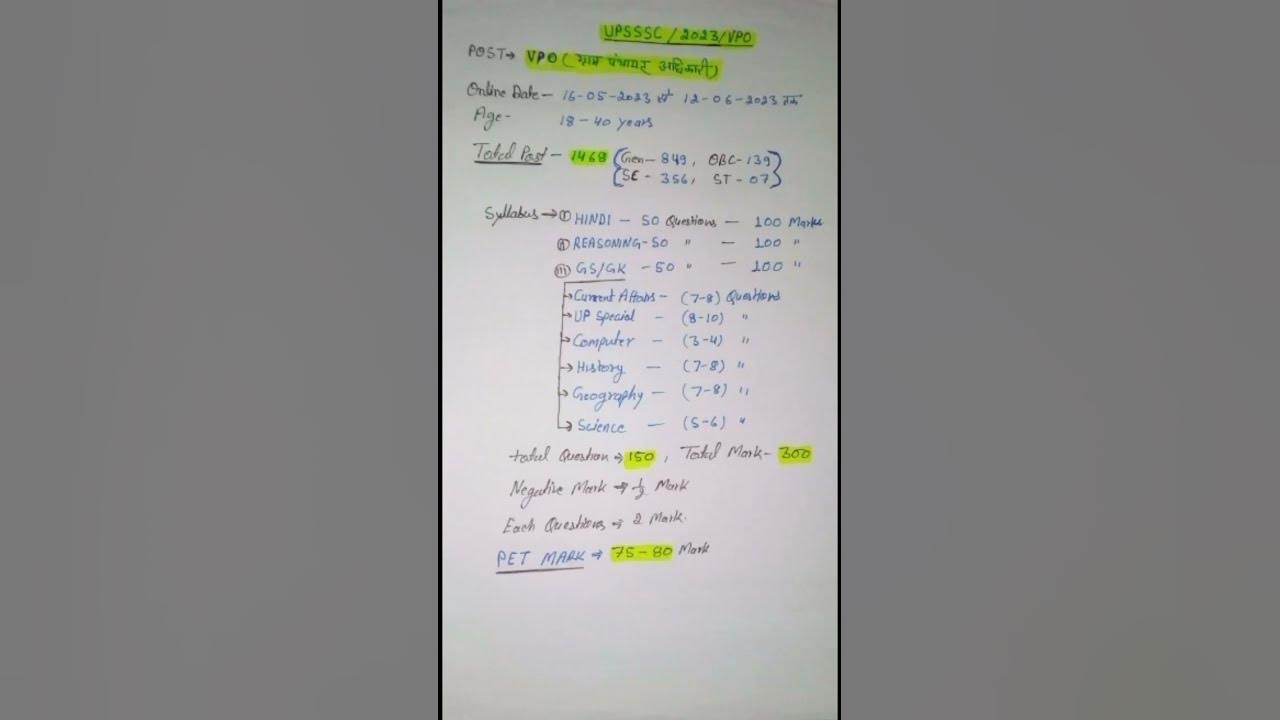 UPSSSC / 2023/VPO
POST→ VPO ( ग्राम पंचायत अधिकारी)
Online Date – 16-05-2023 से 12-06-2023 तक
Age- 18 – 40 years
Total Post – 1468 {Gen- 849, OBC-139}
{SC - 356, ST - 07}
Syllabus → (I) HINDI – 50 Questions – 100 Marks
(II) REASONING-50 " – 100 "
(III) GS/GK - 50 " – 100 "
→ Current Affairs – (7-8) Questions
→ UP Special – (8-10) "
→ Computer – (3-4) "
→ History – (7-8) "
→ Geography – (7-8) "
→ Science – (5-6) "
total Question → 150, Total Mark- 300
Negative Mark → 1/2 Mark
Each Questions → 2 Mark.
PET MARK → 75-80 Mark